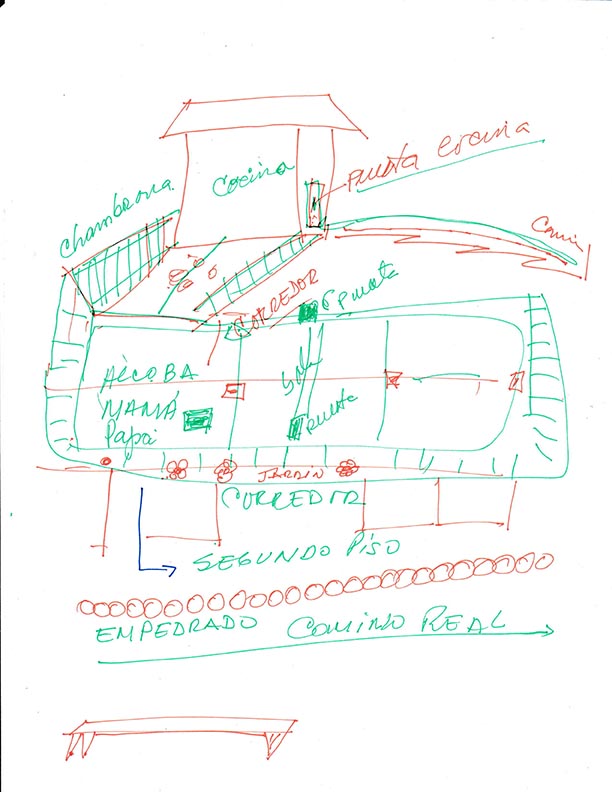 Chambrana
Cocina
puerta cocina
Cami
CORREDOR
puerta
ALCOBA
MAMÁ
Papá
Sala
puerta
JARDIN
CORREDOR
SEGUNDO PISO
EMPEDRADO CAMINO REAL